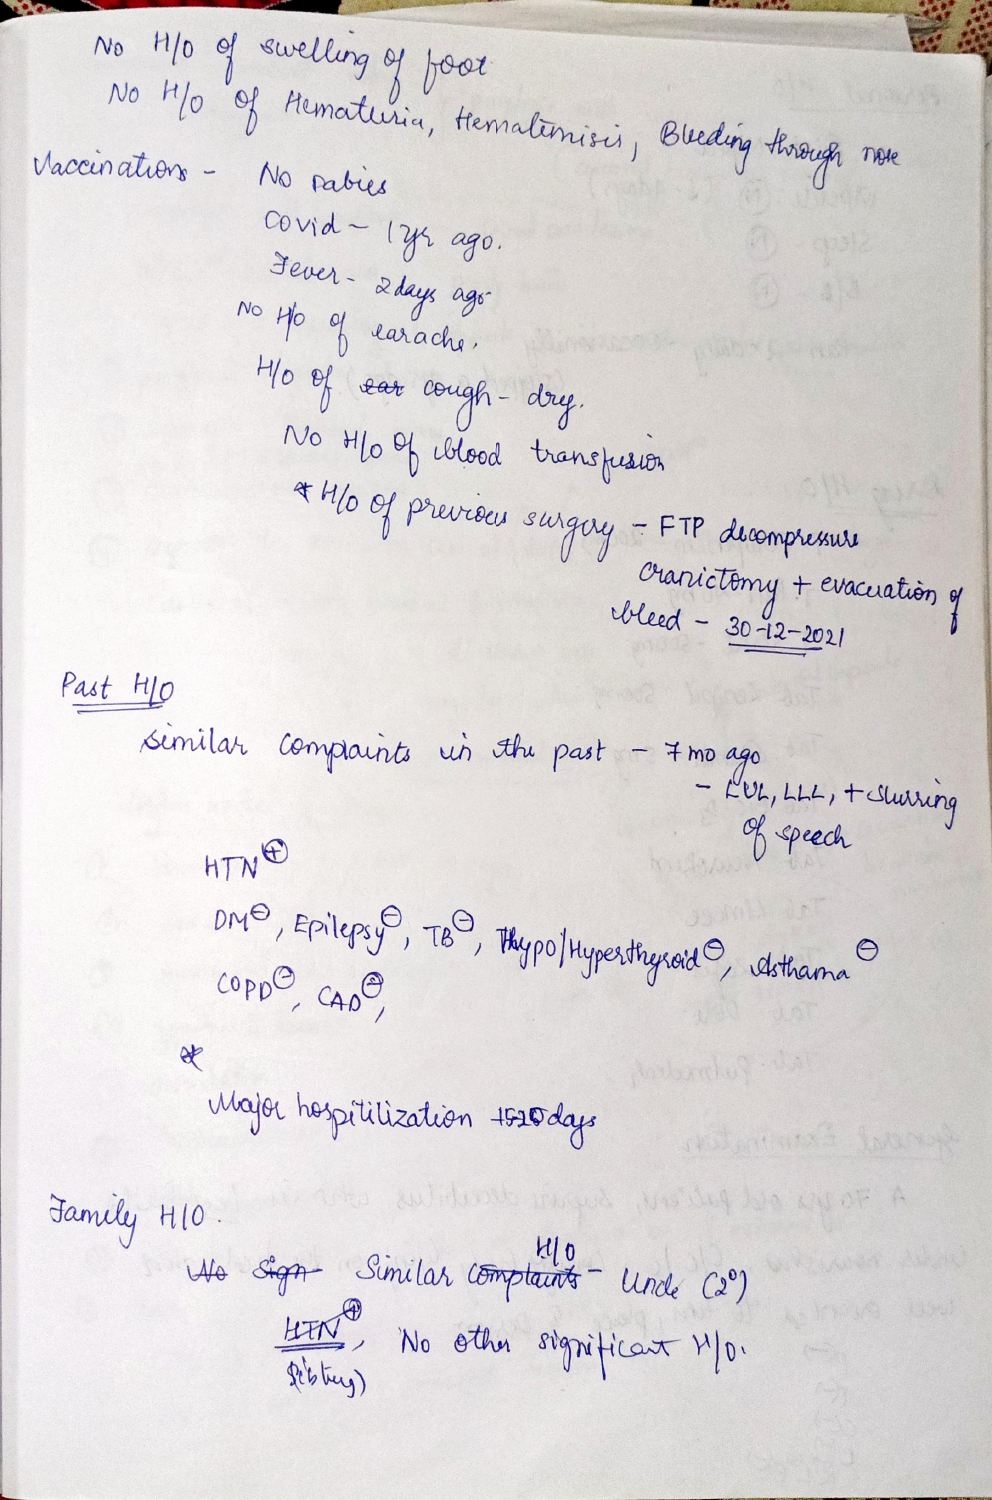 No H/O of swelling of foot
No H/O of Hematuria, Hematemisis, Bleeding through nose
Vaccinations - No rabies
Covid - 1 yr ago.
Fever - 2 days ago
No H/O of earache.
H/O of ear cough - dry.
No H/O of blood transfusion
* H/O of previous surgery - FTP decompressure
cranictomy + evacuation of
bleed - 30-12-2021
Past H/O
Similar complaints in the past - 7 mo ago
- LUL, LLL, + slurring
of speech
HTN ⊕
DM ⊖, Epilepsy ⊖, TB ⊖, Thypo/Hyperthyroid ⊖, Asthama ⊖
COPD ⊖, CAD ⊖,
*
Major hospitilization days
Family H/O.
H/O
No Sign - Similar complaints - Uncle (2°)
HTN ⊕, No other significant H/O.
(sibling)